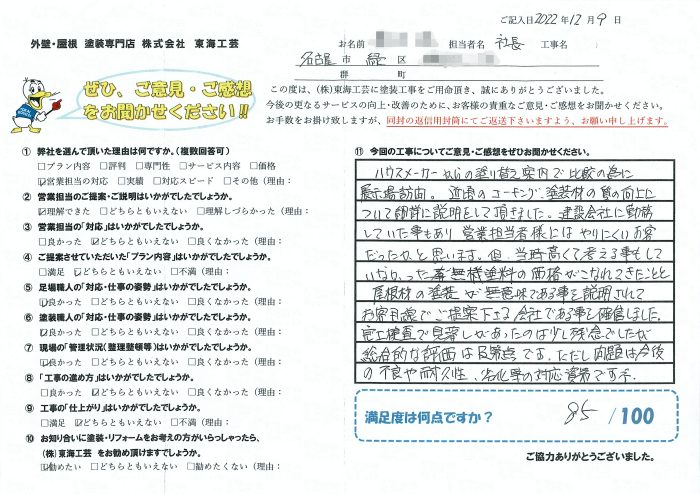 ご記入日2022年12月9日
外壁・屋根 塗装専門店 株式会社 東海工芸
お名前 担当者名 社長 工事名
名古屋市 緑区
郡 町
ぜひ、ご意見・ご感想
をお聞かせください!!
この度は、(株)東海工芸に塗装工事をご用命頂き、誠にありがとうございました。
今後の更なるサービスの向上・改善のために、お客様の貴重なご意見・ご感想をお聞かせください。
お手数をお掛け致しますが、同封の返信用封筒にてご返送下さいますよう、お願い申し上げます。
① 弊社を選んで頂いた理由は何ですか。(複数回答可)
□プラン内容 □評判 □専門性 □サービス内容 □価格
☑営業担当の対応 □実績 □対応スピード □その他(理由:
② 営業担当のご提案・ご説明はいかがでしたでしょうか。
☑理解できた □どちらともいえない □理解しづらかった(理由:
③ 営業担当の「対応」はいかがでしたでしょうか。
□良かった ☑どちらともいえない □良くなかった(理由:
④ ご提案させていただいた「プラン内容」はいかがでしたでしょうか。
□満足 ☑どちらともいえない □不満(理由:
⑤ 足場職人の「対応・仕事の姿勢」はいかがでしたでしょうか。
☑良かった □どちらともいえない □良くなかった(理由:
⑥ 塗装職人の「対応・仕事の姿勢」はいかがでしたでしょうか。
☑良かった □どちらともいえない □良くなかった(理由:
⑦ 現場の「管理状況(整理整頓等)」はいかがでしたでしょうか。
☑良かった □どちらともいえない □良くなかった(理由:
⑧ 「工事の進め方」はいかがでしたでしょうか。
☑良かった □どちらともいえない □良くなかった(理由:
⑨ 工事の「仕上がり」はいかがでしたでしょうか。
□満足 ☑どちらともいえない □不満(理由:
⑩ お知り合いに塗装・リフォームをお考えの方がいらっしゃったら、
(株)東海工芸 をお勧め頂けますでしょうか。
☑勧めたい □どちらともいえない □勧めたくない(理由:
⑪ 今回の工事についてご意見・ご感想をぜひお聞かせください。
ハウスメーカーからの塗り替え案内で比較の為に
展示場訪問。近頃のコーキング、塗装材の質の向上に
ついて細部に説明をして頂きました。建設会社に勤務
していた事もあり営業担当者様にはやりにくいお客
だったかと思います。但、当時高くて考える事もして
いなかった無機塗料の価格がこなれてきたことと
屋根材の塗装が無意味である事を説明されて
お客目線でご提案下さる会社である事を確信しました。
完工検査で見落しがあったのは少し残念でしたが
総合的な評価は及第点です。ただし問題は今後
の不良や耐久性、劣化等の対応資質ですネ。
満足度は何点ですか? 85/100
ご協力ありがとうございました。